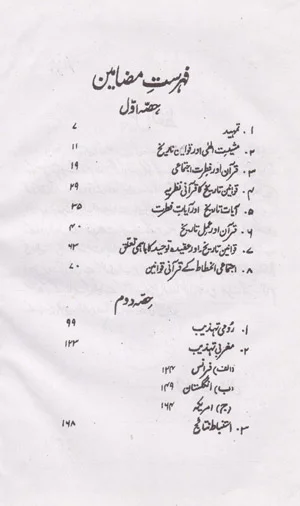 فہرستِ مضامین
حصّہ اوّل
۱. تمہید ۷
۲. مشیتِ الٰہی اور قوانینِ تاریخ ۱۱
۳. قرآن اور فطرتِ اجتماعی ۱۹
۴. قوانینِ تاریخ کا قرآنی نظریہ ۲۹
۵. آیاتِ تاریخ اور آیاتِ فطرت ۳۵
۶. قرآن اور عملِ تاریخ ۴۰
۷. قوانینِ تاریخ، اور عقیدہ توحید کا باہمی تعلق ۶۳
۸. اجتماعی انحطاط کے قرآنی قوانین ۷۰
حِصّہ دوم
۱. رُومی تہذیب ۹۹
۲. مغربی تہذیب ۱۲۳
(الف) فرانس ۱۲۴
(ب) انگلستان ۱۴۹
(ج) امریکہ ۱۶۴
۳. استنباطِ نتائج ۱۶۸